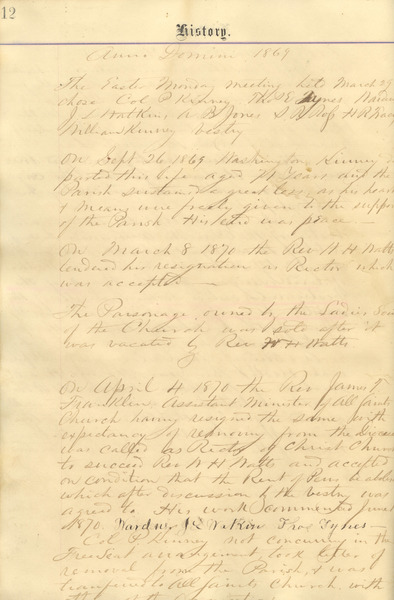 12
History.
Anno Domini 1869
The Easter Monday meeting held March 29
chose Col P Kinney Tho E
J L Watkins A B Jones S R H R
William Kinney Vestry
On Sept 26 1869 Washington Kinney
parted this life aged years and the
Parish sustained a great loss, as his
& means were freely given to the support
of the Parish His end was peace —
On March 8 1870 the Rev W H Watts
tendered his resignation as Rector which
was accepted —
The Parsonage owned by the Ladies Soc
of the Church was sold after it
was vacated by Rev W H Watts
On April 4 1870 the Rev James T
Franklin, Assistant Minister of All Saints
Church having resigned the same with
expectancy of removing from the Diocese
was called as Rector of Christ Church
to succeed Rev W H Watts and accepted
on condition that the Rent of Pews be
which after discussion by the Vestry was
agreed to His work commenced June
1870. Wardens J L Watkins Thos
Col P Kinney not concurring in the
Freeseat arrangement took letter of
removal from the Parish, & was
transferred to All Saints Church, with